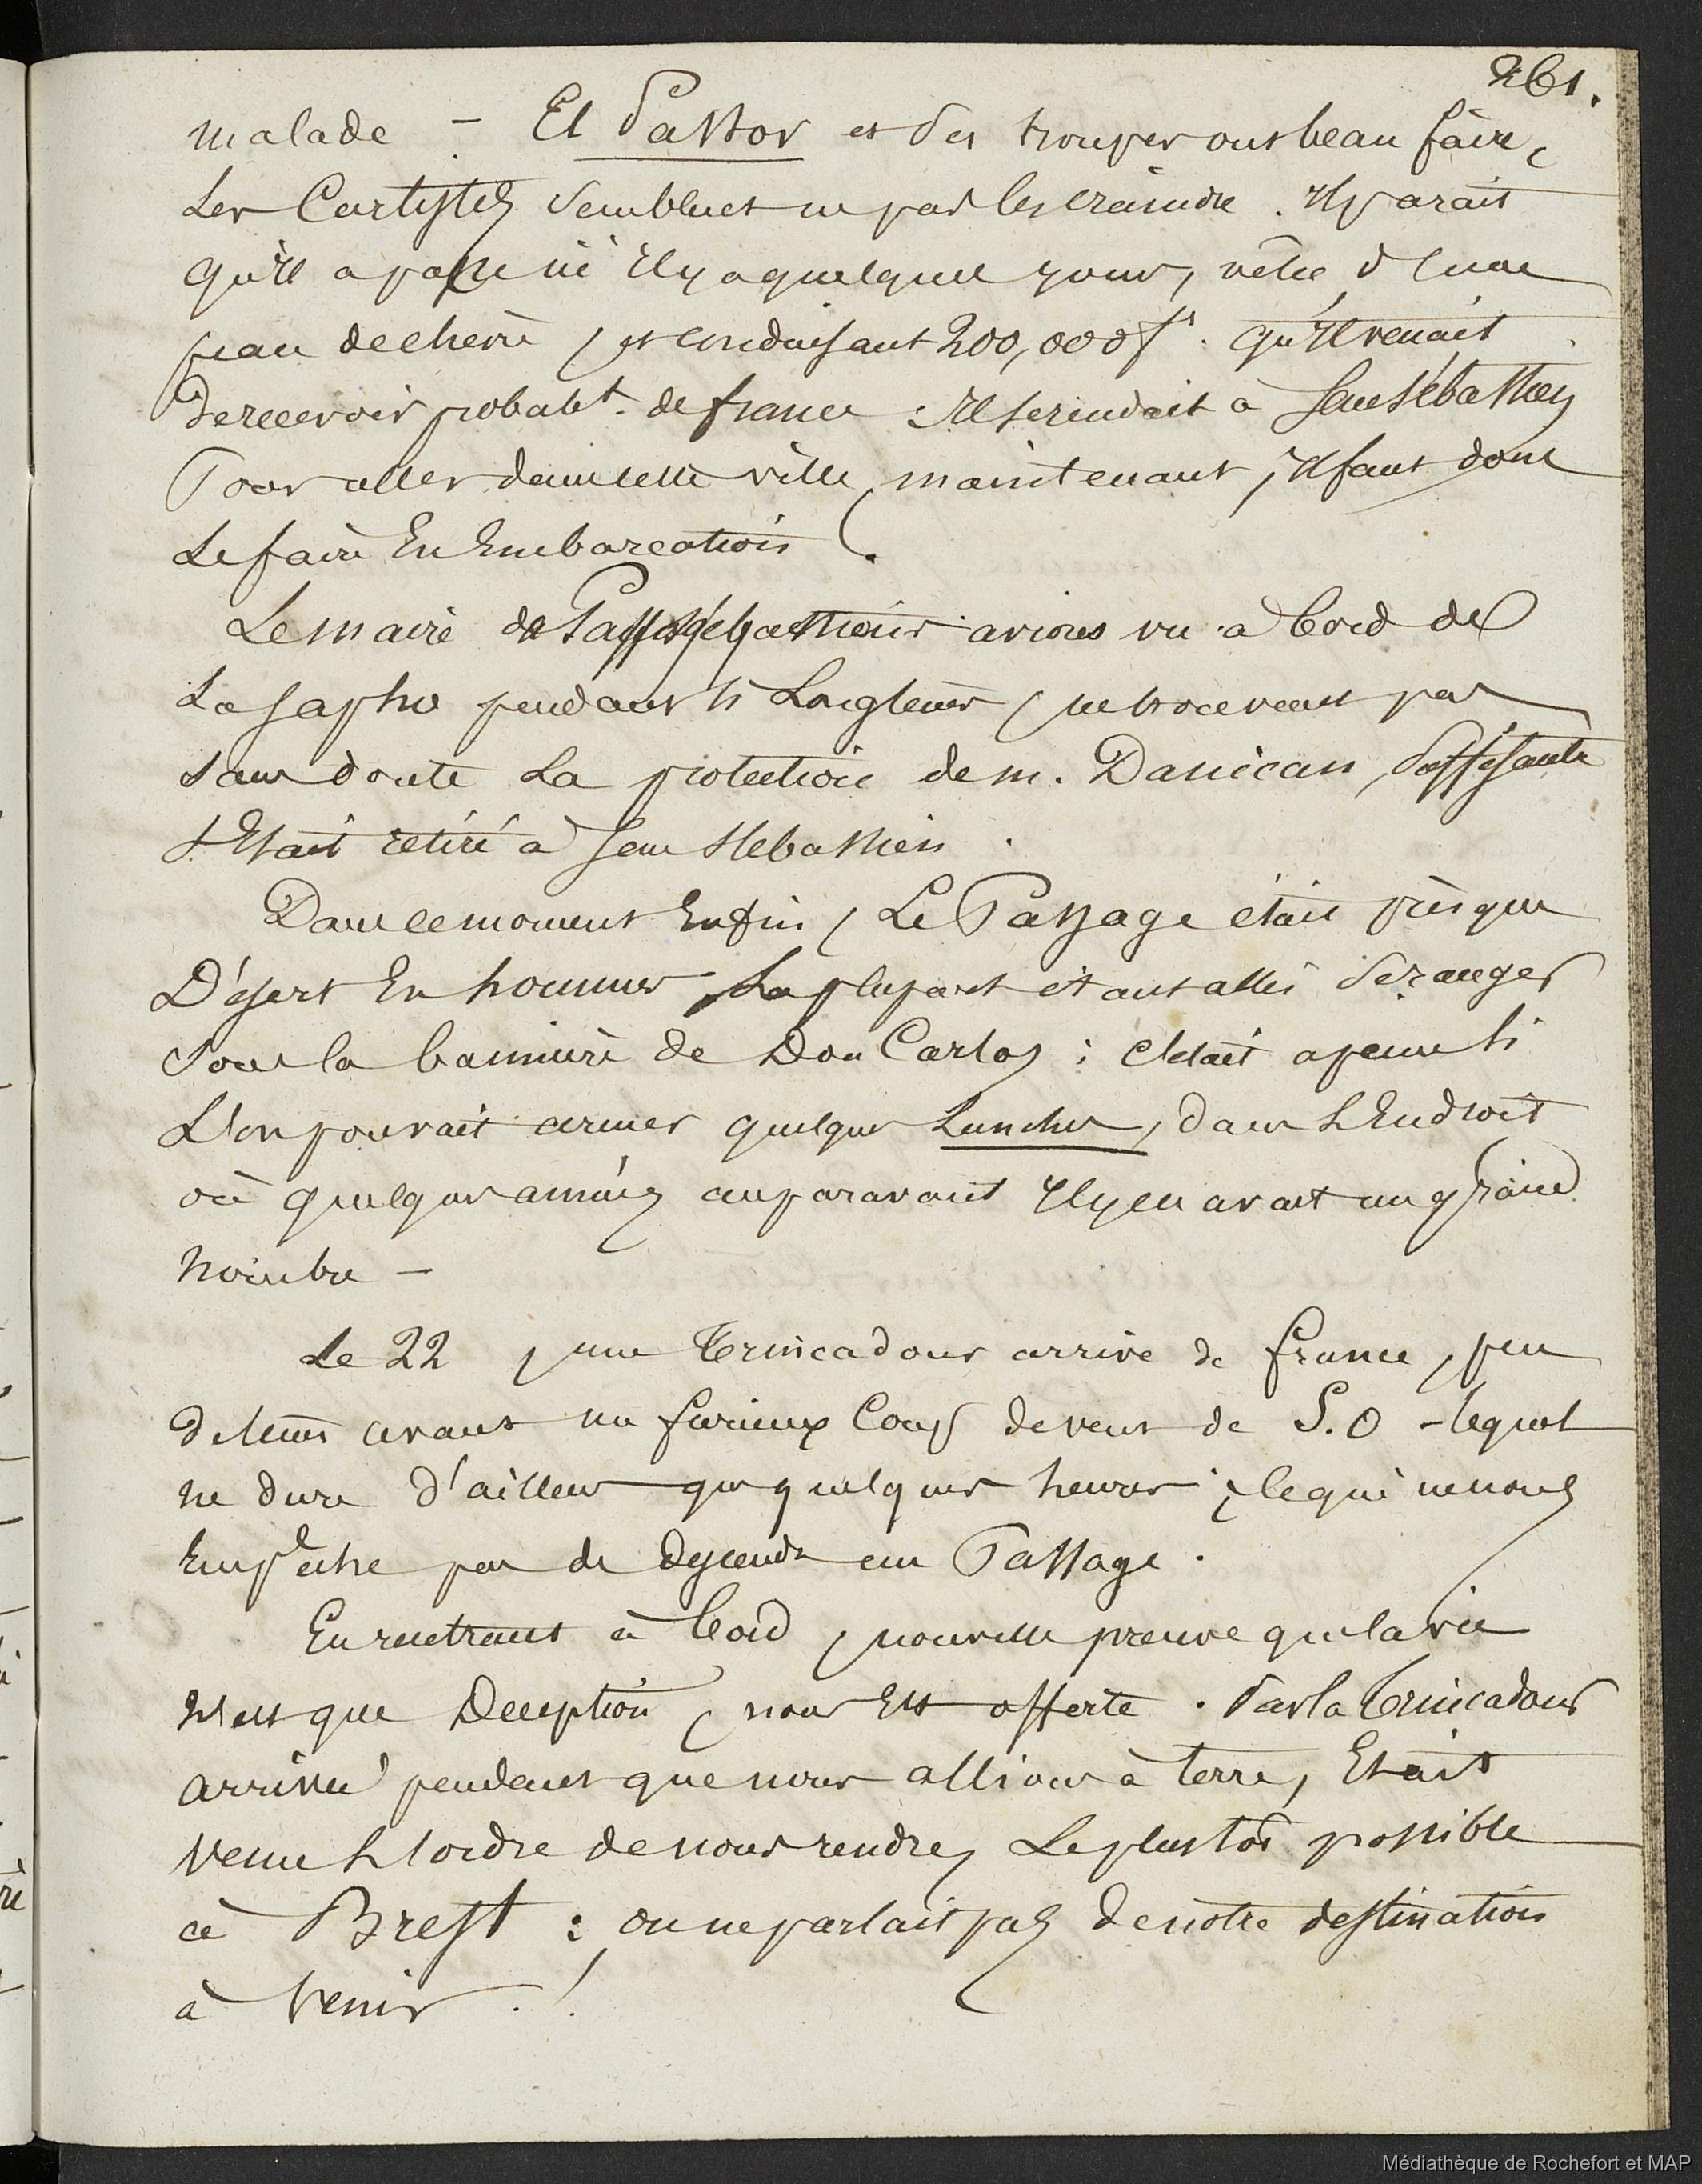 261.
malade - El Pastor et ses troupes ont beau faire,
Les Carlistes semblent ne pas les craindre. Il paraît
qu'Il a passé ici Il y a quelques jours, vêtu d'une
peau de chèvre, et conduisant 200,000 f. qu'Il venait
De recevoir probabt. de france : Il se rendait à San Sébastien
Pour aller dans cette ville, maintenant, Il faut donc
Le faire En Embarcation.
Le maire de que nous avions vu à bord de
La Sapho pendant si Longtems, ne trouvant pas
sans doute La protection de m. Danican, suffisante
s'Etait retiré à San Sébastien.
Dans ce moment Enfin, Le Passage était presque
Désert En hommes, La plupart étant allés se ranger
sous la bannière de Don Carlos : c'était à peine si
L'on pouvait armer quelques Lanches, dans L'Endroit
où quelques années auparavant Il y en avait un grand
nombre -
Le 22, une Trincadour arrive de france, peu
de tems avant un furieux Coup de vent de S.O - lequel
ne dure d'ailleurs que quelques heures ; ce qui ne nous
Empêche pas de descendre au Passage.
En rentrant à bord, nouvelle preuve que la vie
n'est que Déception, nous Est offerte. Par la Trincadour
arrivée pendant que nous allions à terre, Etait
venu L'ordre de nous rendre, Le plus tôt possible
à Brest : on ne parlait pas de notre destination
à venir !
Médiathèque de Rochefort et MAP